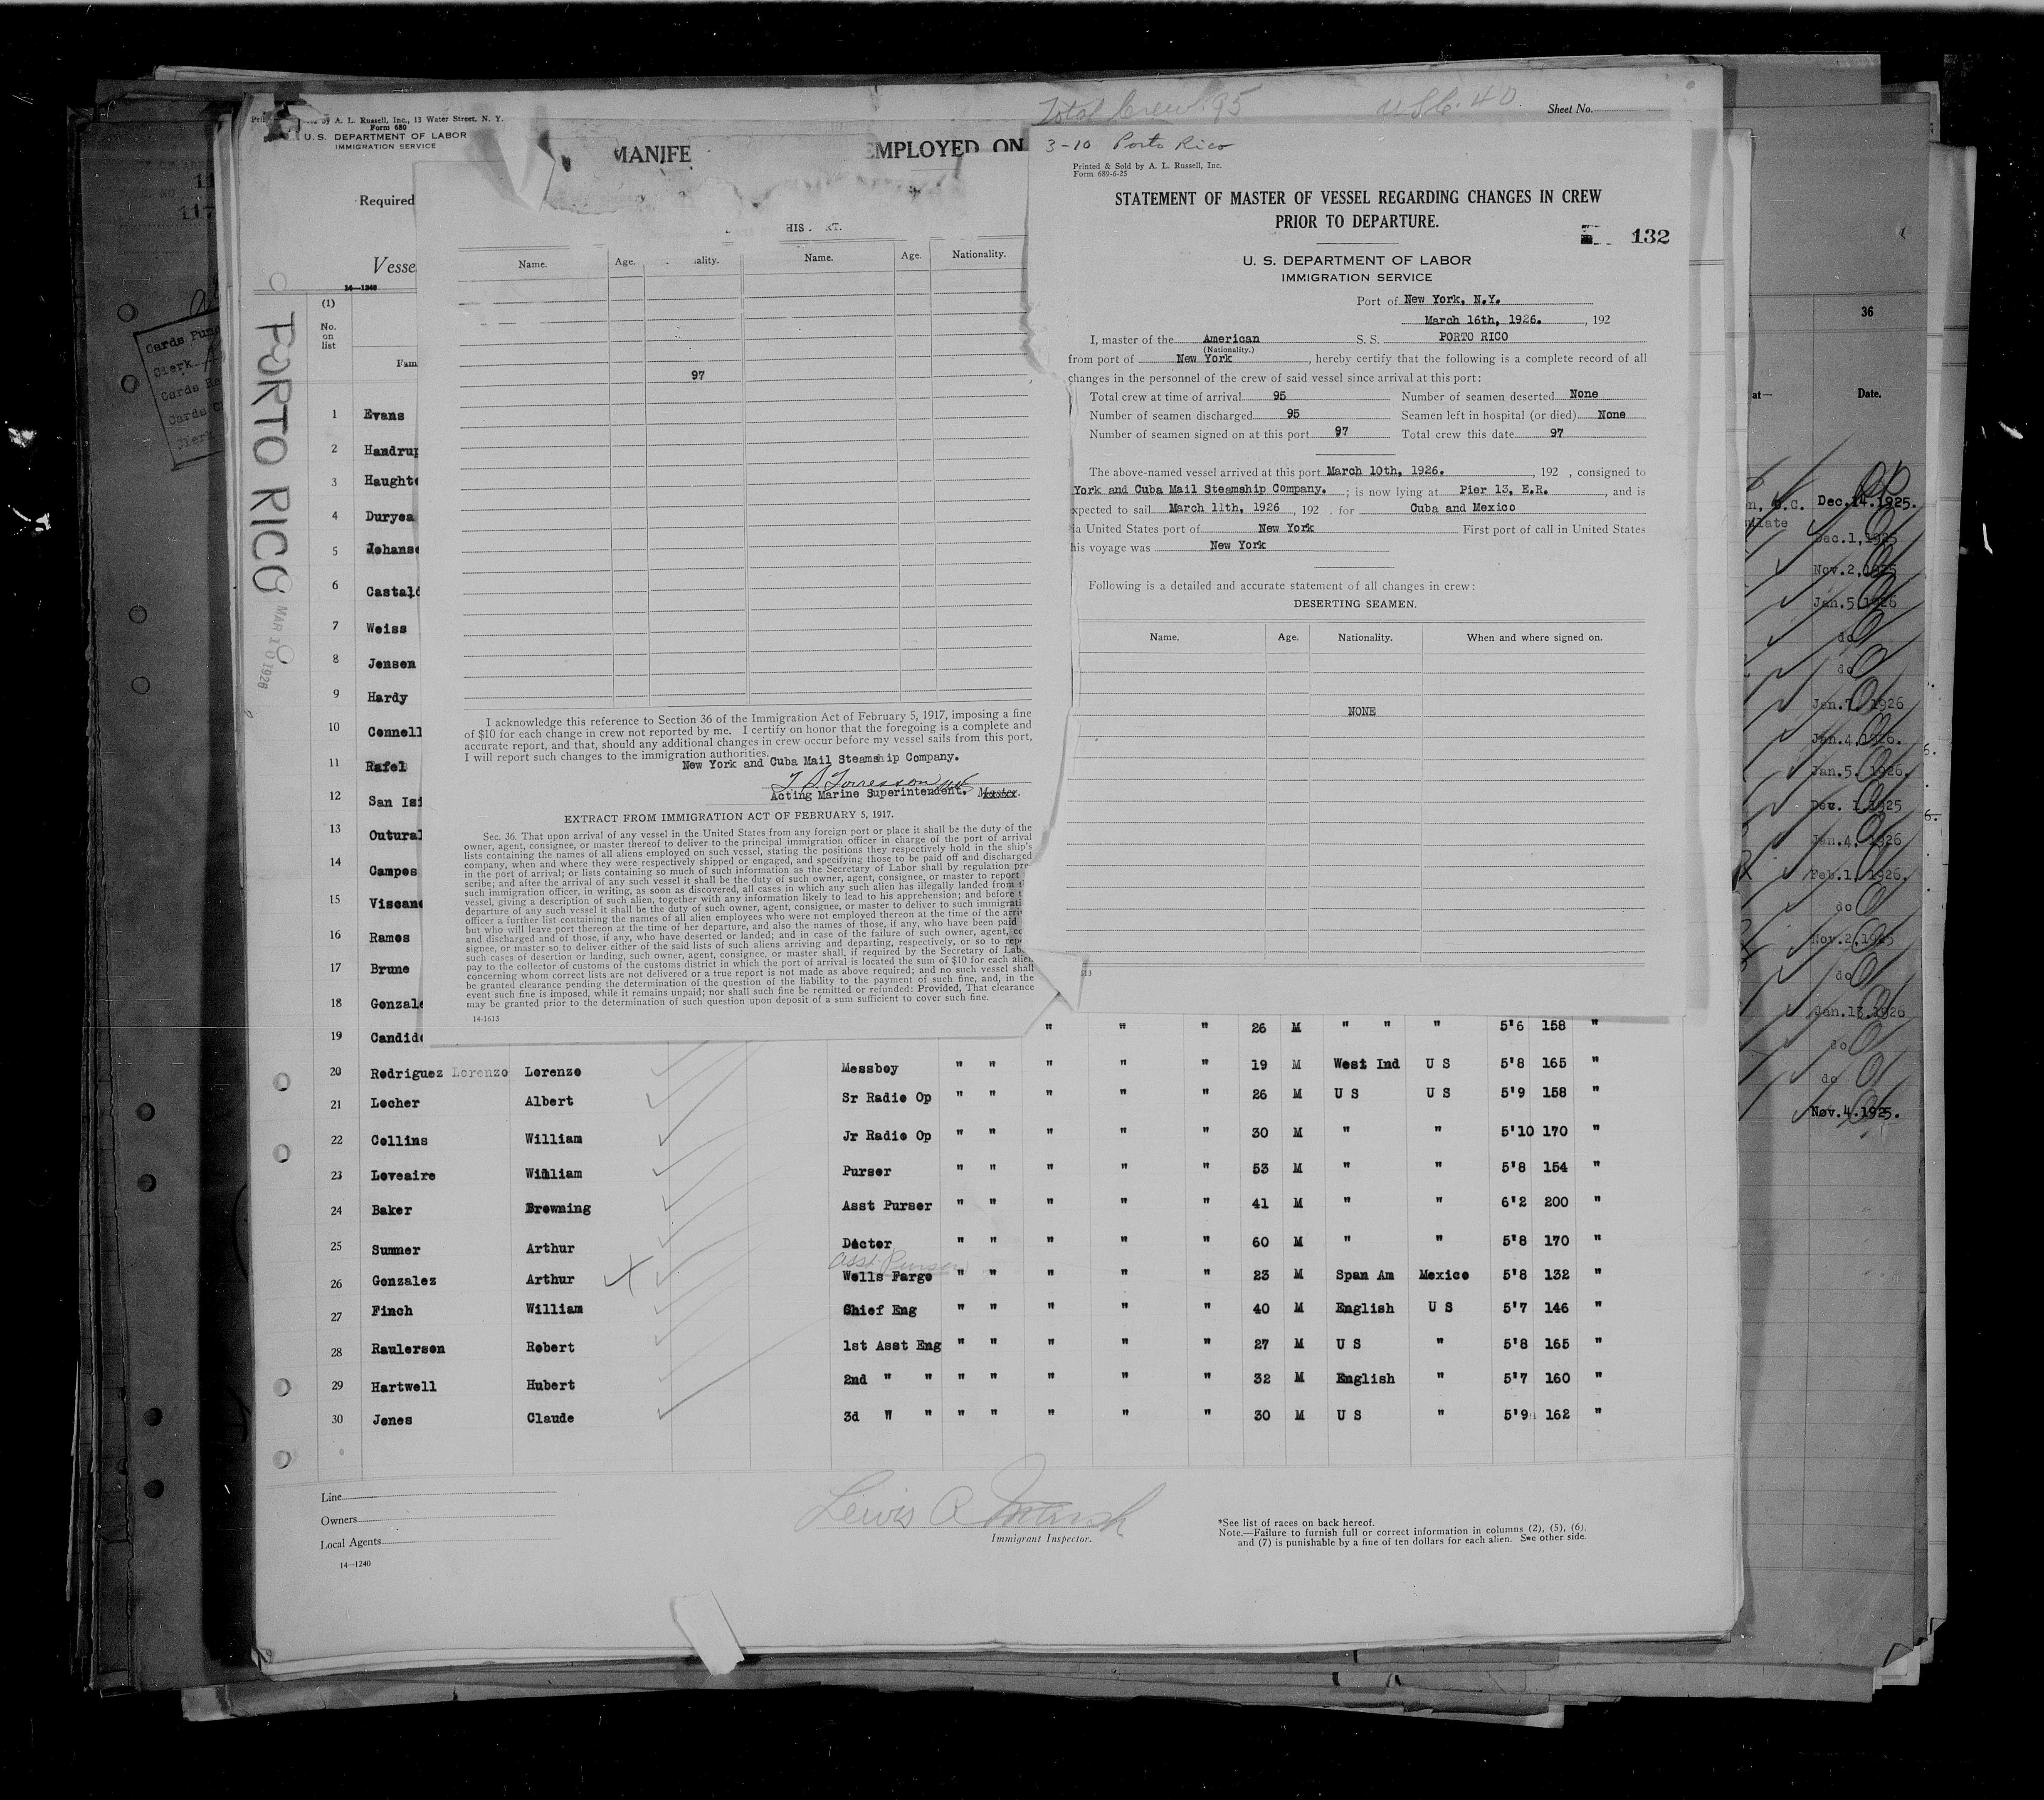 Total Crew 95 U.S.C. 40 Sheet No.
by A. L. Russell, Inc., 13 Water Street, N. Y.
Form 680
U. S. DEPARTMENT OF LABOR
IMMIGRATION SERVICE
MANIFE EMPLOYED ON
Required
Vesse
14—1240
(1)
No. on list
Fam
PORTO RICO
MAR 10 1926
1 Evans
2 Handrup
3 Haughto
4 Duryea
5 Johanse
6 Castald
7 Weiss
8 Jensen
9 Hardy
10 Connell
11 Rafel
12 San Isi
13 Outural
14 Campos
15 Viscano
16 Ramos
17 Brune
18 Gonzale
19 Candido " " " 26 M " " " 5'6 158 "
20 Rodriguez Lorenzo Lorenzo Messboy " " " " " 19 M West Ind U S 5'8 165 "
21 Locher Albert Sr Radio Op " " " " " 26 M U S U S 5'9 158 "
22 Collins William Jr Radio Op " " " " " 30 M " " 5'10 170 "
23 Loveaire William Purser " " " " " 53 M " " 5'8 154 "
24 Baker Browning Asst Purser " " " " " 41 M " " 6'2 200 "
25 Sumner Arthur Doctor " " " " " 60 M " " 5'8 170 "
Asst Purser
26 Gonzalez Arthur Wells Fargo " " " " " 23 M Span Am Mexico 5'8 132 "
27 Finch William Chief Eng " " " " " 40 M English U S 5'7 146 "
28 Raulerson Robert 1st Asst Eng " " " " " 27 M U S " 5'8 165 "
29 Hartwell Hubert 2nd " " " " " " " 32 M English " 5'7 160 "
30 Jones Claude 3d " " " " " " " 30 M U S " 5'9 162 "
Line
Owners
Local Agents
14—1240
Lewis A Marsh
Immigrant Inspector.
*See list of races on back hereof.
Note.—Failure to furnish full or correct information in columns (2), (5), (6),
and (7) is punishable by a fine of ten dollars for each alien. See other side.
HIS RT.
Name. Age. ality. Name. Age. Nationality.
97
I acknowledge this reference to Section 36 of the Immigration Act of February 5, 1917, imposing a fine
of $10 for each change in crew not reported by me. I certify on honor that the foregoing is a complete and
accurate report, and that, should any additional changes in crew occur before my vessel sails from this port,
I will report such changes to the immigration authorities.
New York and Cuba Mail Steamship Company.
Acting Marine Superintendent. Master.
EXTRACT FROM IMMIGRATION ACT OF FEBRUARY 5, 1917.
Sec. 36. That upon arrival of any vessel in the United States from any foreign port or place it shall be the duty of the
owner, agent, consignee, or master thereof to deliver to the principal immigration officer in charge of the port of arrival
lists containing the names of all aliens employed on such vessel, stating the positions they respectively hold in the ship's
company, when and where they were respectively shipped or engaged, and specifying those to be paid off and discharged
in the port of arrival; or lists containing so much of such information as the Secretary of Labor shall by regulation pre-
scribe; and after the arrival of any such vessel it shall be the duty of such owner, agent, consignee, or master to report
such immigration officer, in writing, as soon as discovered, all cases in which any such alien has illegally landed from
vessel, giving a description of such alien, together with any information likely to lead to his apprehension; and before
departure of any such vessel it shall be the duty of such owner, agent, consignee, or master to deliver to such immigrati
officer a further list containing the names of all alien employees who were not employed thereon at the time of the arri
but who will leave port thereon at the time of her departure, and also the names of those, if any, who have been paid
and discharged and of those, if any, who have deserted or landed; and in case of the failure of such owner, agent, co
signee, or master so to deliver either of the said lists of such aliens arriving and departing, respectively, or so to rep
such cases of desertion or landing, such owner, agent, consignee, or master shall, if required by the Secretary of Lab
pay to the collector of customs of the customs district in which the port of arrival is located the sum of $10 for each alien
concerning whom correct lists are not delivered or a true report is not made as above required; and no such vessel shall
be granted clearance pending the determination of the question of the liability to the payment of such fine, and, in the
event such fine is imposed, while it remains unpaid; nor shall such fine be remitted or refunded: Provided, That clearance
may be granted prior to the determination of such question upon deposit of a sum sufficient to cover such fine.
14-1613
3-10 Porto Rico
Printed & Sold by A. L. Russell, Inc.
Form 689-6-25
STATEMENT OF MASTER OF VESSEL REGARDING CHANGES IN CREW
PRIOR TO DEPARTURE.
132
U. S. DEPARTMENT OF LABOR
IMMIGRATION SERVICE
Port of New York, N.Y.
March 16th, 1926. , 192
I, master of the American S. S. PORTO RICO
(Nationality.)
from port of New York , hereby certify that the following is a complete record of all
changes in the personnel of the crew of said vessel since arrival at this port:
Total crew at time of arrival 95 Number of seamen deserted None
Number of seamen discharged 95 Seamen left in hospital (or died) None
Number of seamen signed on at this port 97 Total crew this date 97
The above-named vessel arrived at this port March 10th, 1926. , 192 , consigned to
York and Cuba Mail Steamship Company. ; is now lying at Pier 13, E.R. , and is
xpected to sail March 11th, 1926 , 192 . for Cuba and Mexico
ia United States port of New York First port of call in United States
his voyage was New York
Following is a detailed and accurate statement of all changes in crew:
DESERTING SEAMEN.
Name. Age. Nationality. When and where signed on.
NONE
613
36
at— Date.
n, D.C. Dec.14.1925.
ulate Dec.1,1925
Nov.2,1925
Jan.5,1926
do
do
Jan.7, 1926
Jan.4,1926.
Jan.5. 1926.
Dec. 1,1925
Jan.4, 1926
Feb.1, 1926.
do
Nov.2,1925
do
Jan.13,1926
do
do
Nov.4.1925.
117
Cards Pun
Clerk
Cards Re
Cards C
Clerk